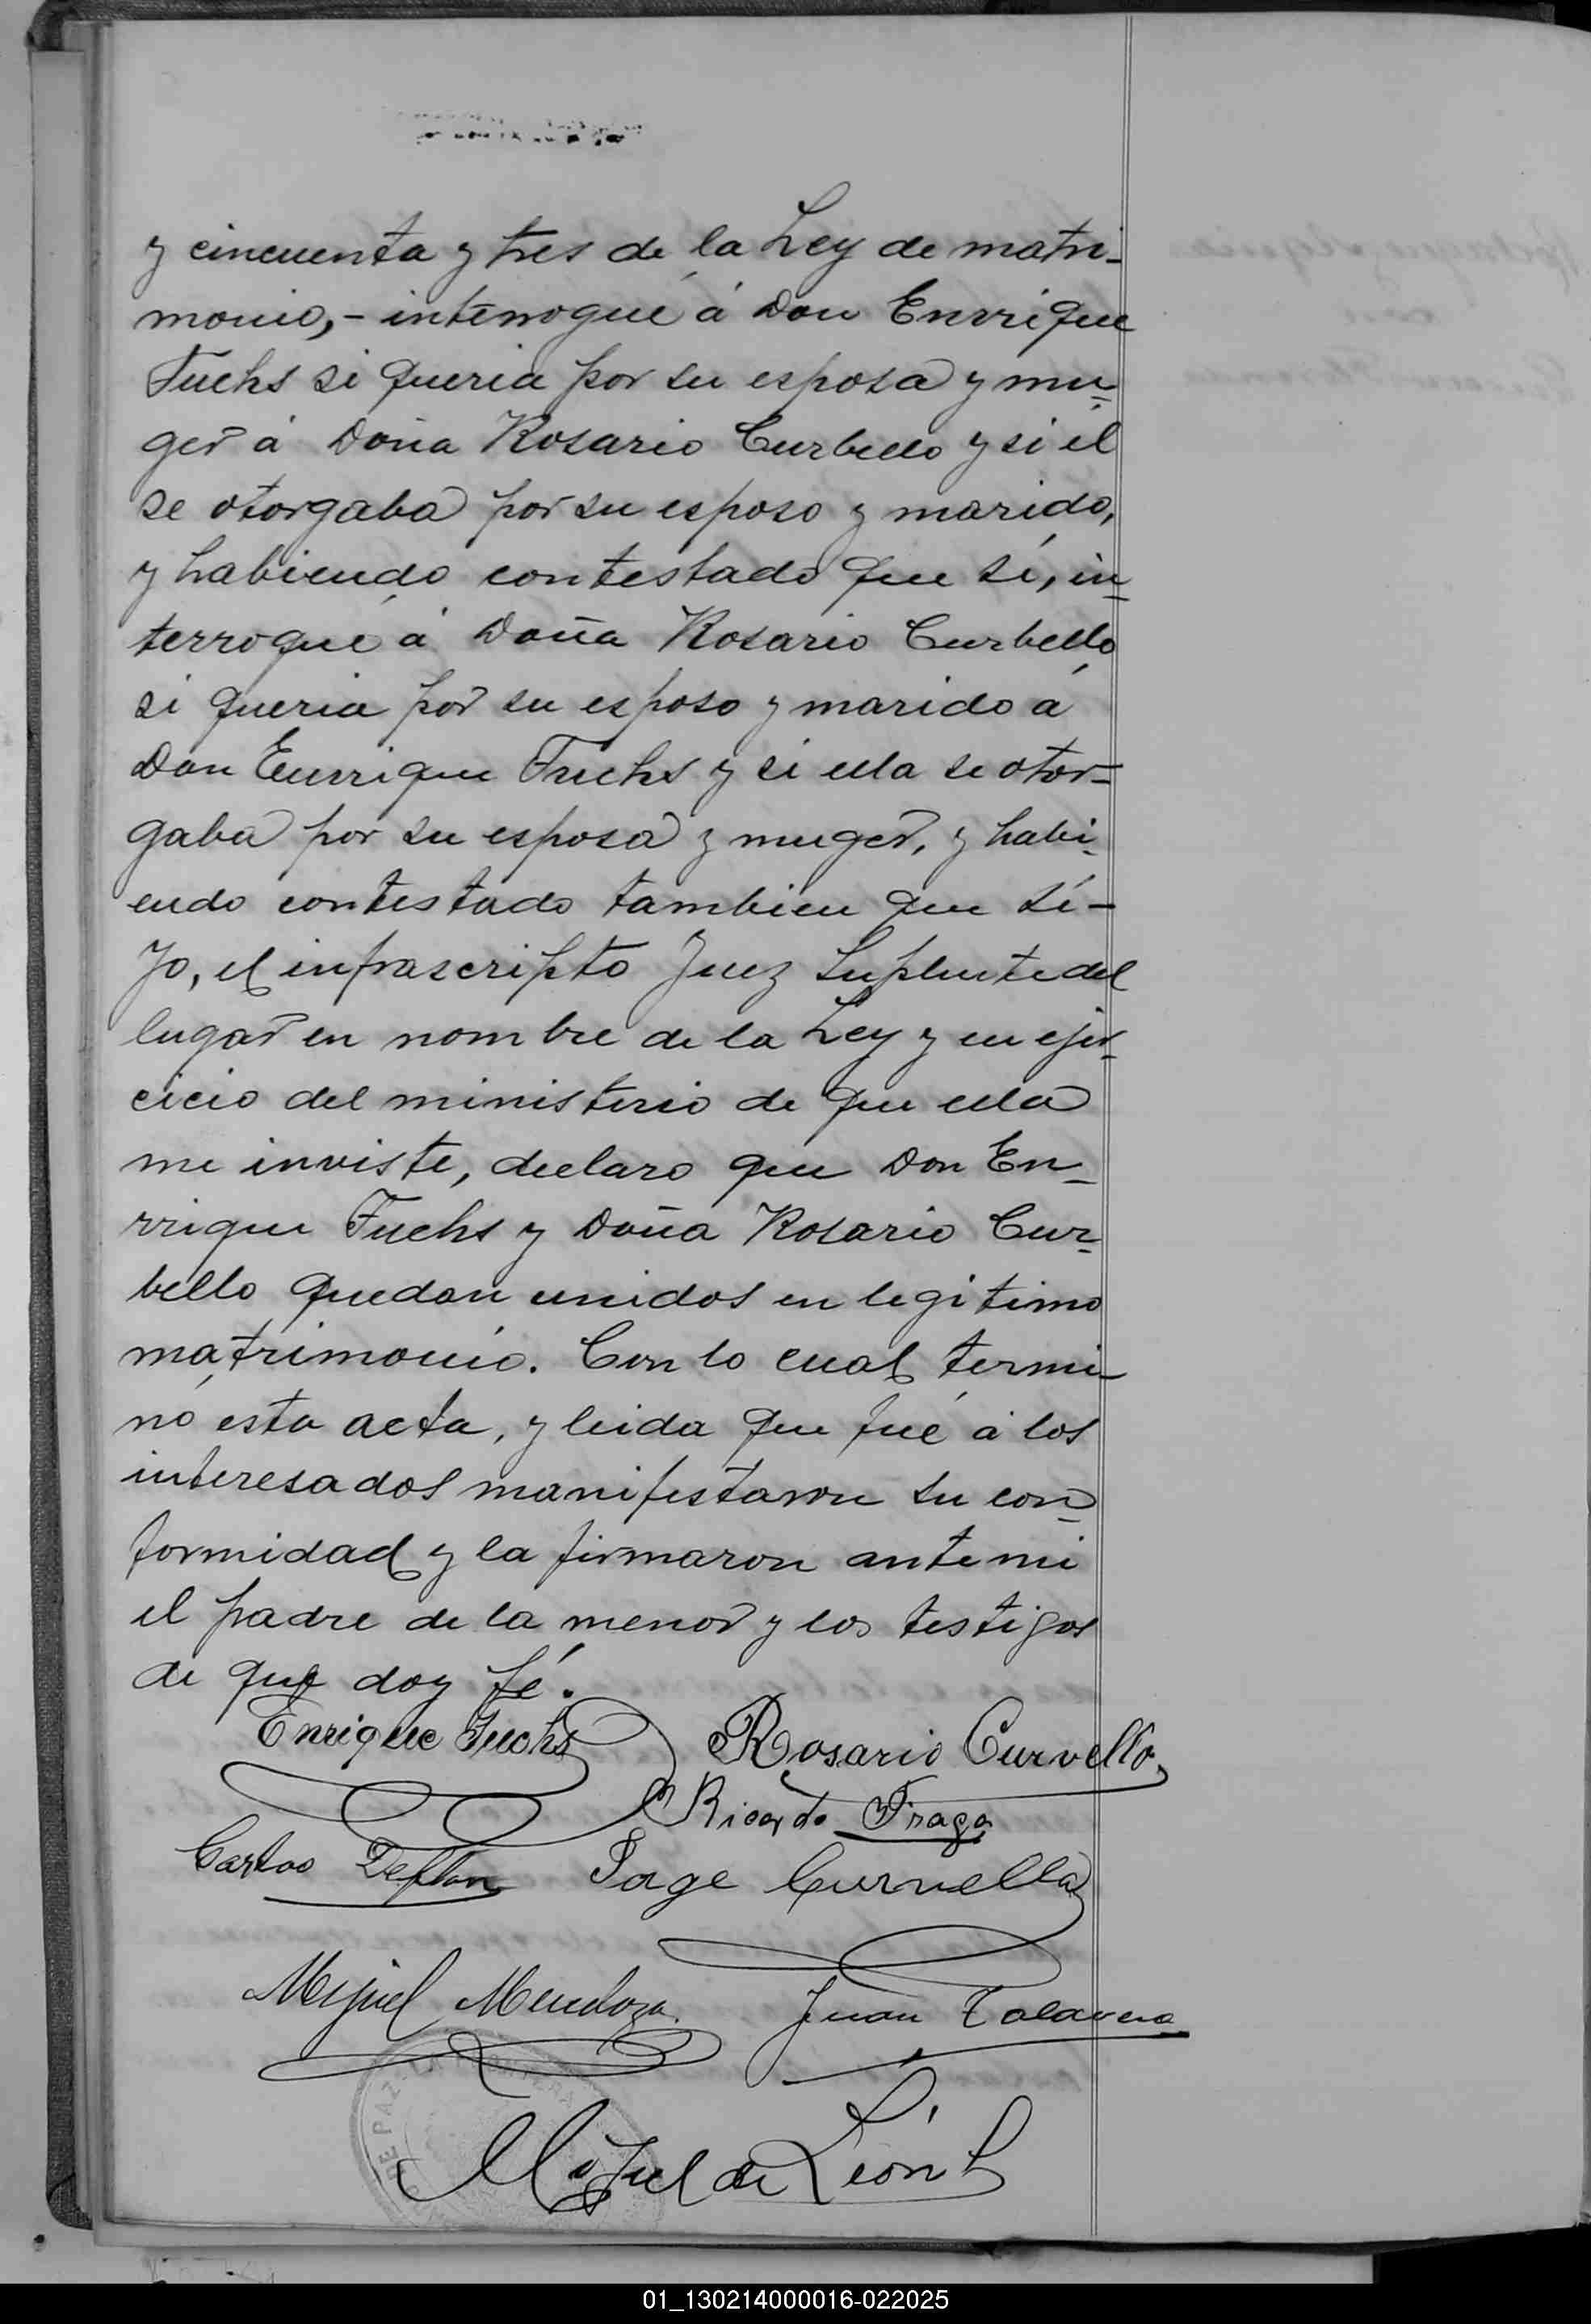 y cincuenta y tres de la Ley de matri-
monio,- interrogué á Don Enrrique
Fuchs si queria por su esposa y mu-
ger á Doña Rosario Curbello y si él
se otorgaba por su esposo y marido,
y habiendo contestado que sí, in-
terrogué á Doña Rosario Curbello
si queria por su esposo y marido á
Don Enrrique Fuchs y si ella se otor-
gaba por su esposa y muger, y habi-
endo contestado tambien que sí-
Yo, el infrascripto Juez Suplente del
lugar en nombre de la Ley y en ejer-
cicio del ministerio de que ella
me inviste, declaro que Don En-
rrique Fuchs y Doña Rosario Cur-
bello quedan unidos en legitimo
matrimonio. Con lo cual termi-
nó esta acta, y leida que fué á los
interesados manifestaron su con-
formidad y la firmaron ante mi
el padre de la menor y los testigos
de que doy fé.
Enrique Fuchs Rosario Curvello
Ricardo Fraga
Carlos Jorge Curvello
Miguel Mendoza Juan Talavera
DE PAZ
Miguel de León
01_130214000016-022025